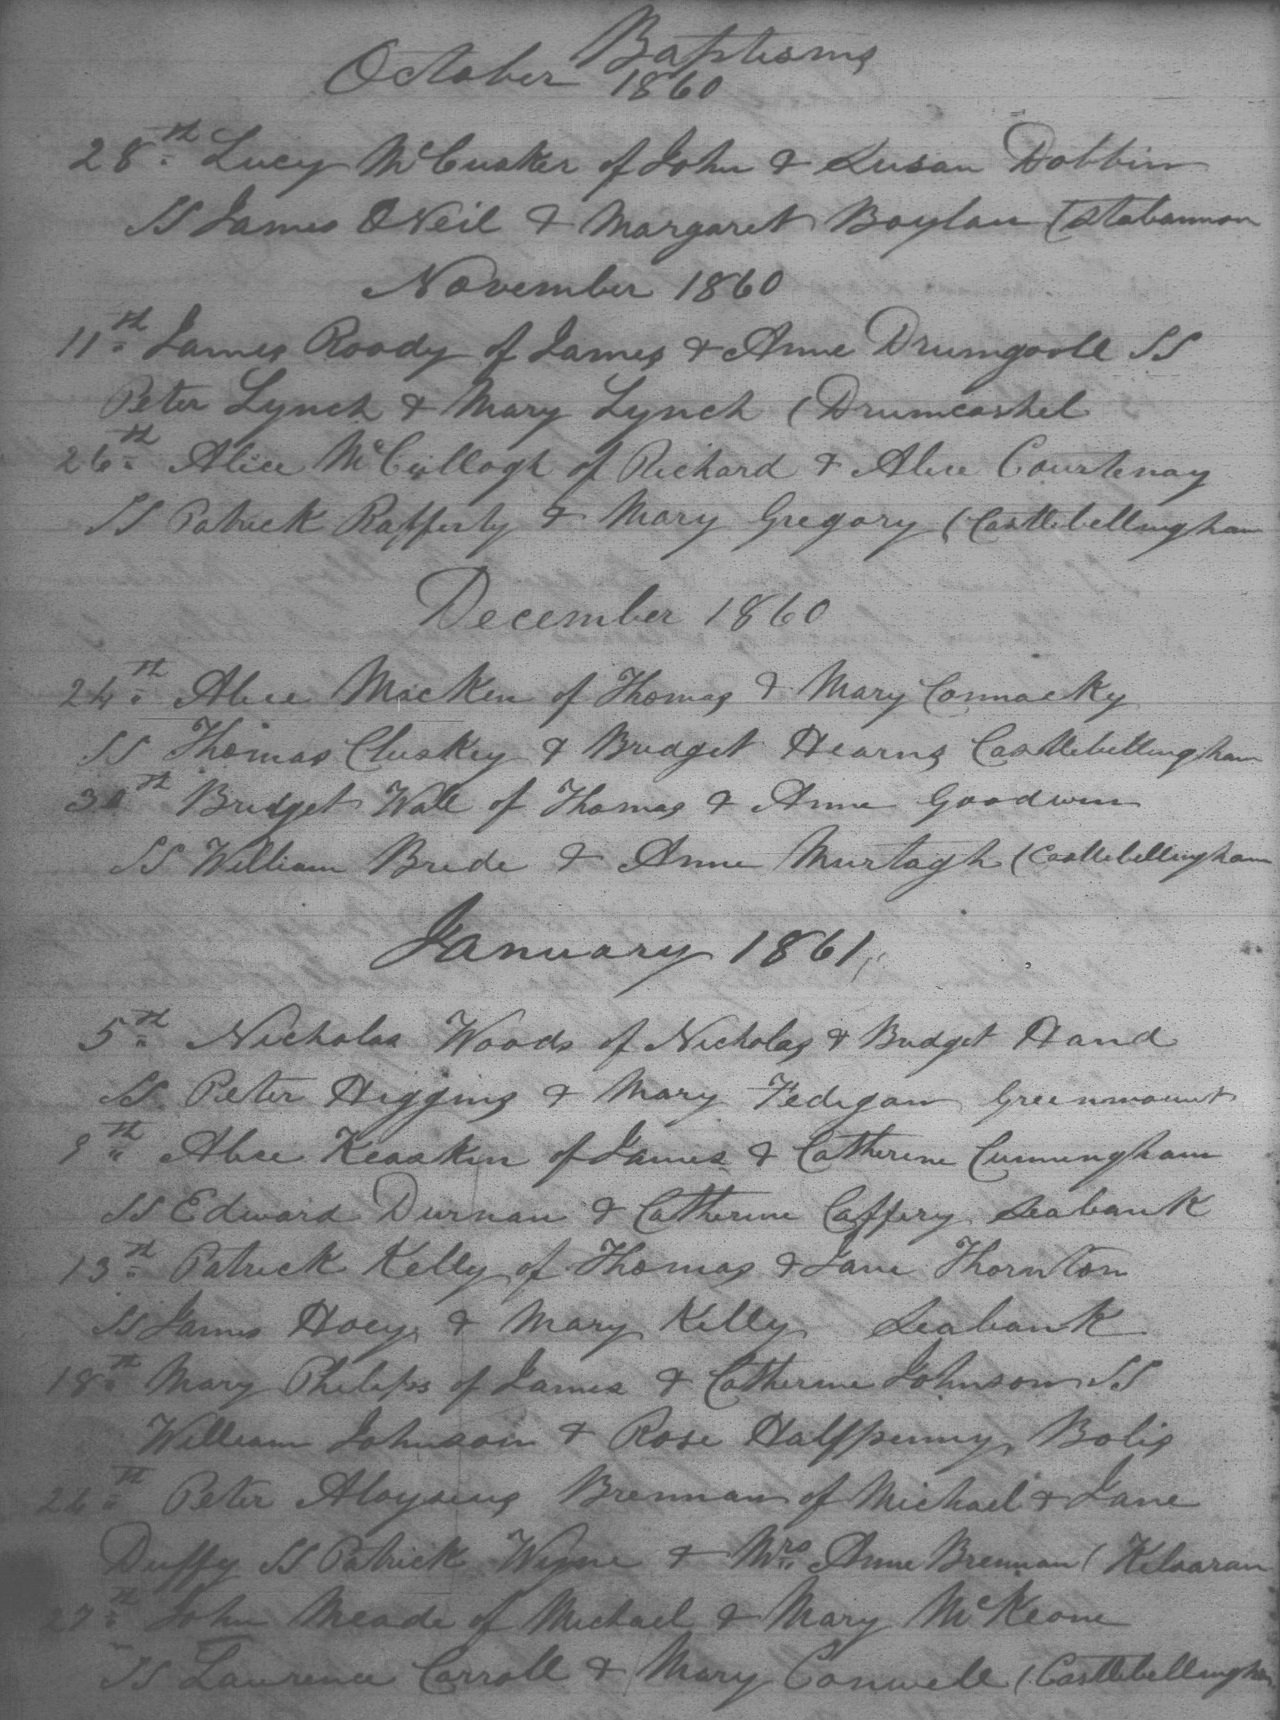 Baptisms
October 1860
28th Lucy McCusker of John & Susan Dobbin
SS James O'Neil & Margaret Boylan (Stabannon
November 1860
11th James Roody of James & Anne Drumgoole SS
Peter Lynch & Mary Lynch (Drumcashel
26th Alice McCullogh of Richard & Alice Courtenay
SS Patrick Rafferty & Mary Gregory (Castlebellingham
December 1860
24th Alice Macken of Thomas & Mary Connacky
SS Thomas Cluskey & Bridget Hearns Castlebellingham
30th Bridget Wall of Thomas & Anne Goodwin
SS William Brede & Anne Murtagh (Castlebellingham
January 1861
5th Nicholas Woods of Nicholas & Bridget Hand
SS Peter Higgins & Mary Fedigan Greenmount
9th Alice Keaskin of James & Catherine Cunningham
SS Edward Durnan & Catherine Caffery Seabank
13th Patrick Kelly of Thomas & Jane Thornton
SS James Hoey & Mary Kelly Seabank
18th Mary Philips of James & Catherine Johnson SS
William Johnson & Rose Halfpenny Bolis
24th Peter Aloysius Brennan of Michael & Jane
Duffy SS Patrick Wynne & Mrs Anne Brennan (Kilsaran
27th John Meade of Michael & Mary McKeone
SS Lawrence Carroll & Mary Conwell (Castlebellingham